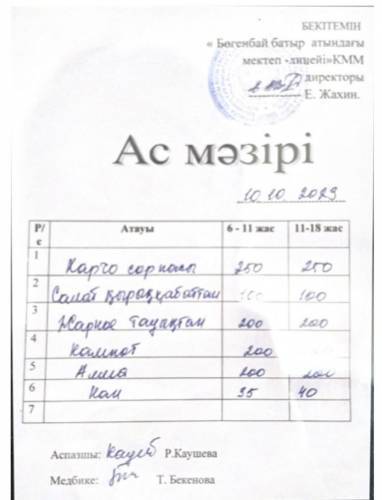 БЕКІТЕМІН
« Бөгенбай батыр атындағы
мектеп -лицейі»КММ
директоры
Е. Жахин.
Ас мәзірі
10.10.2023
Р/с Атауы 6 - 11 жас 11-18 жас
1 Харчо сорпасы 250 250
2 Салат қырыққабаттан 100 100
3 Жаркое тауықтан 200 200
4 Компот 200
5 Алма 200 200
6 Нан 35 40
7
Аспазшы: Р.Каушева
Медбике: Т. Бекенова